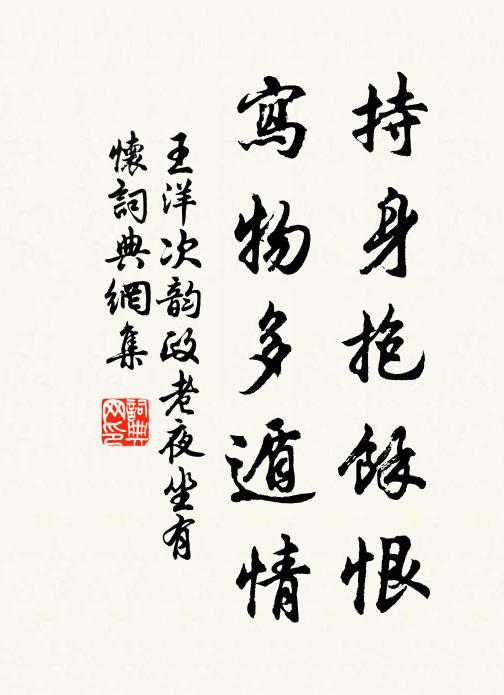 持身抱餘恨
寫物多遁情
王洋次韵政老夜坐有
懷詞典網集
詞典
网印